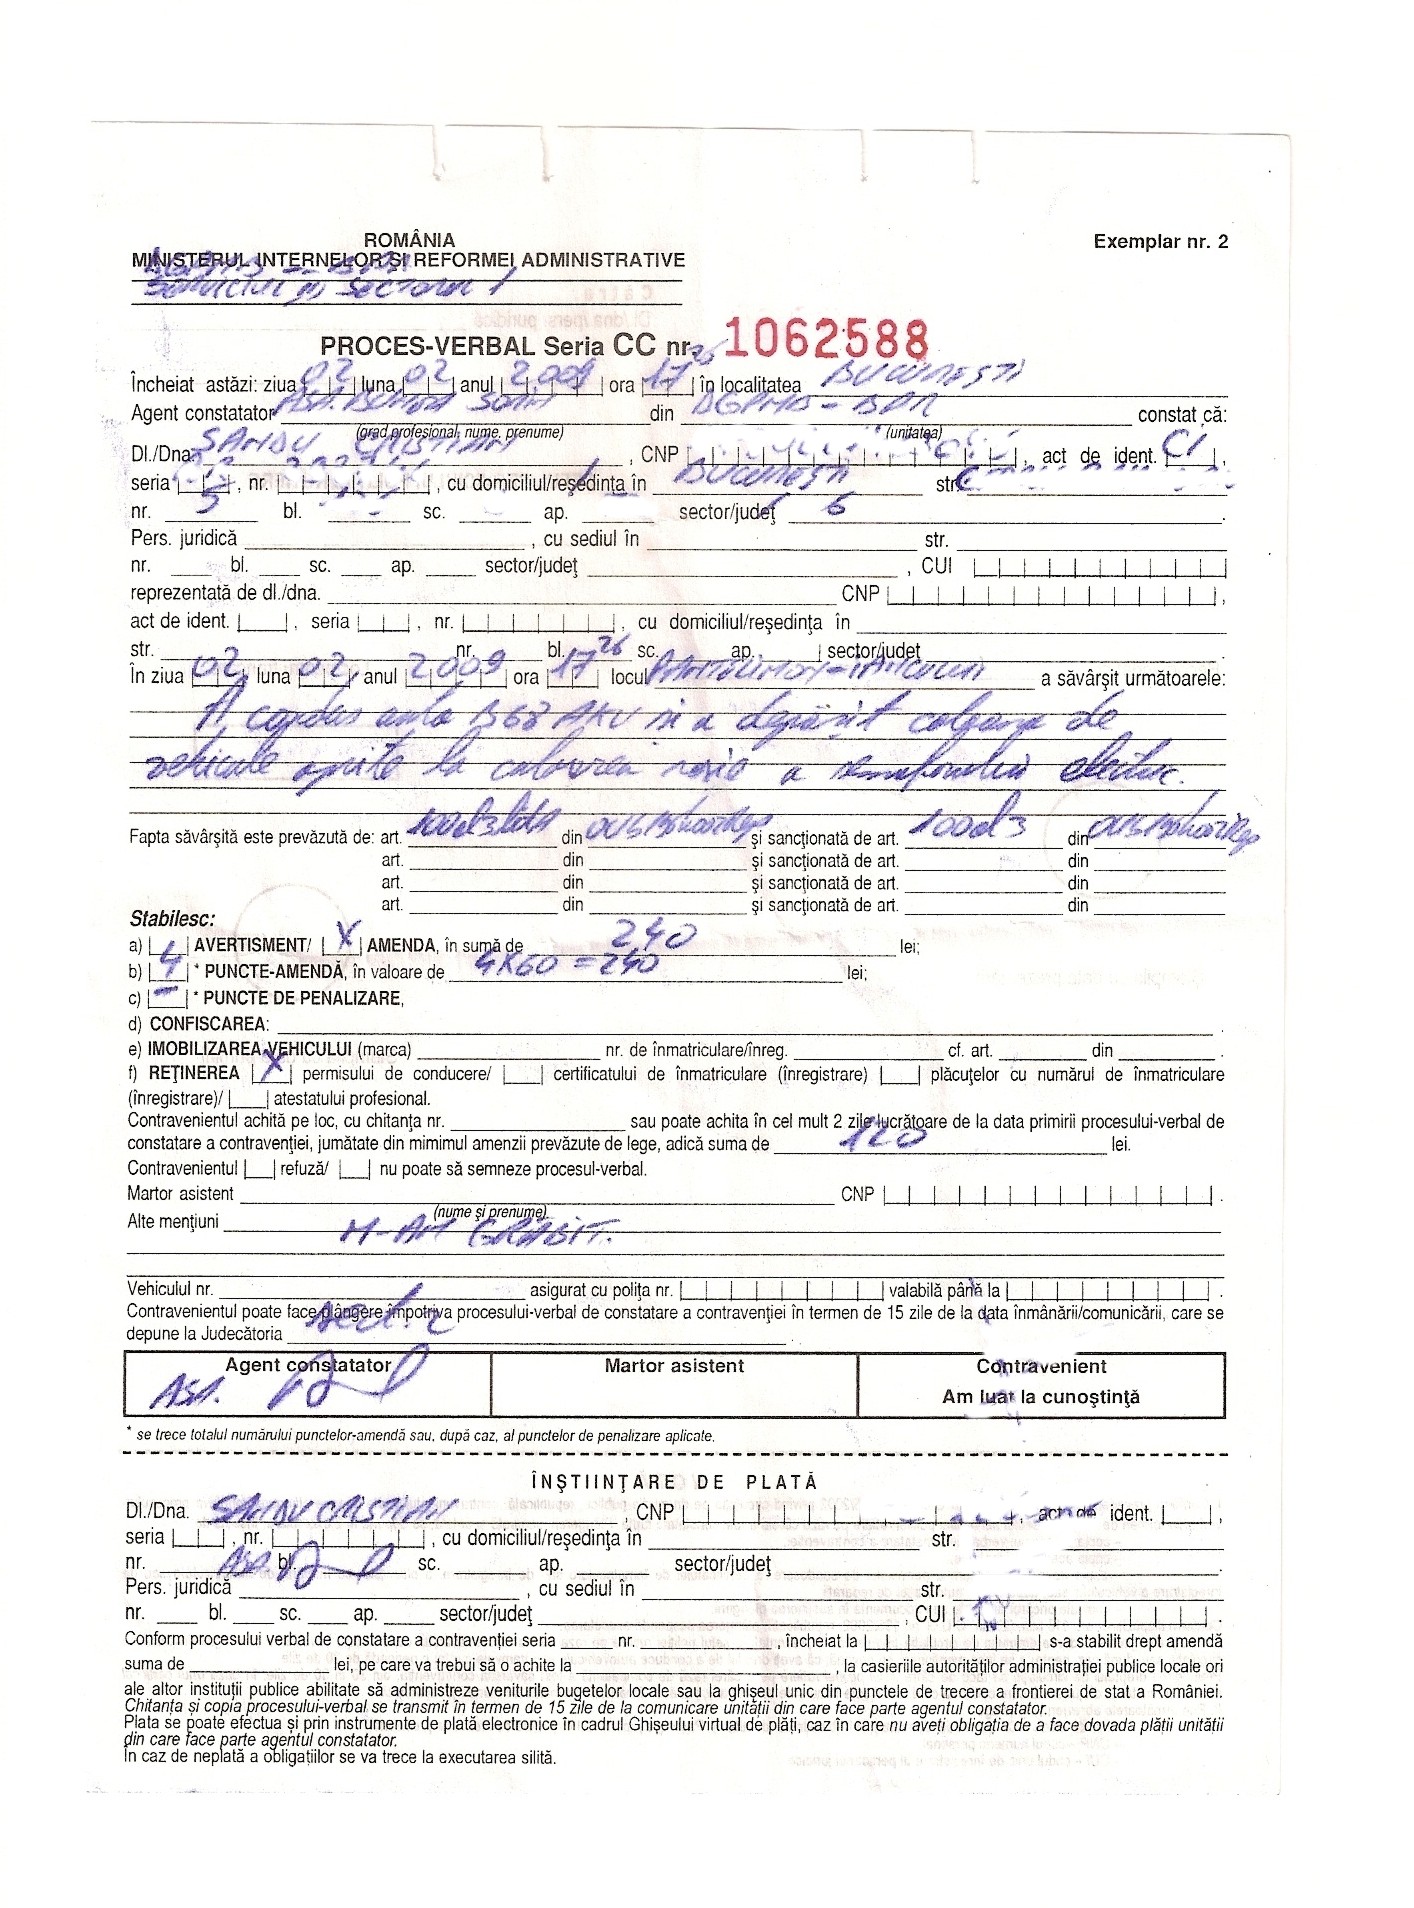 ROMÂNIA
Exemplar nr. 2
MINISTERUL INTERNELOR ŞI REFORMEI ADMINISTRATIVE
PROCES-VERBAL Seria CC nr. 1062588
Încheiat astăzi: ziua 02 luna 02 anul 2009 ora 17 26 în localitatea BUCUREŞTI
Agent constatator din DGPMB - BPR constat că:
(grad profesional, nume, prenume) (unitatea)
Dl./Dna. SANDU CRISTIAN, CNP, act de ident. CI,
seria, nr., cu domiciliul/reşedinţa în BUCUREŞTI str.
nr. 5 bl. sc. ap. sector/judeţ 6.
Pers. juridică, cu sediul în str.
nr. bl. sc. ap. sector/judeţ, CUI
reprezentată de dl./dna. CNP,
act de ident., seria, nr., cu domiciliul/reşedinţa în
str. nr. bl. sc. ap. sector/judeţ.
În ziua 02 luna 02 anul 2009 ora 17 26 locul a săvârşit următoarele:
A condus auto B68AKU si a depăsit coloana de
vehicule oprite la culoarea rosie a semaforului electric.
Fapta săvârşită este prevăzută de: art. 100al3 din şi sancţionată de art. 100al3 din
art. din şi sancţionată de art. din
art. din şi sancţionată de art. din
art. din şi sancţionată de art. din
Stabilesc:
a) AVERTISMENT/ X AMENDA, în sumă de 240 lei;
b) 4 * PUNCTE-AMENDĂ, în valoare de 4x60=240 lei;
c) - * PUNCTE DE PENALIZARE,
d) CONFISCAREA: .
e) IMOBILIZAREA VEHICULUI (marca) nr. de înmatriculare/înreg. cf. art. din .
f) REŢINEREA X permisului de conducere/ certificatului de înmatriculare (înregistrare) plăcuţelor cu numărul de înmatriculare
(înregistrare)/ atestatului profesional.
Contravenientul achită pe loc, cu chitanţa nr. sau poate achita în cel mult 2 zile lucrătoare de la data primirii procesului-verbal de
constatare a contravenţiei, jumătate din mimimul amenzii prevăzute de lege, adică suma de 120 lei.
Contravenientul refuză/ nu poate să semneze procesul-verbal.
Martor asistent CNP .
(nume şi prenume)
Alte menţiuni M-AM GRĂBIT.
Vehiculul nr. asigurat cu poliţa nr. valabilă până la .
Contravenientul poate face plângere împotriva procesului-verbal de constatare a contravenţiei în termen de 15 zile de la data înmânării/comunicării, care se
depune la Judecătoria Sect. 2
Agent constatator Martor asistent Contravenient
Am luat la cunoştinţă
* se trece totalul numărului punctelor-amendă sau, după caz, al punctelor de penalizare aplicate.
ÎNŞTIINŢARE DE PLATĂ
Dl./Dna. SANDU CRISTIAN, CNP, act de ident.,
seria, nr., cu domiciliul/reşedinţa în str.
nr. bl. sc. ap. sector/judeţ .
Pers. juridică, cu sediul în str.
nr. bl. sc. ap. sector/judeţ, CUI .
Conform procesului verbal de constatare a contravenţiei seria nr., încheiat la s-a stabilit drept amendă
suma de lei, pe care va trebui să o achite la, la casieriile autorităţilor administraţiei publice locale ori
ale altor instituţii publice abilitate să administreze veniturile bugetelor locale sau la ghişeul unic din punctele de trecere a frontierei de stat a României.
Chitanţa şi copia procesului-verbal se transmit în termen de 15 zile de la comunicare unităţii din care face parte agentul constatator.
Plata se poate efectua şi prin instrumente de plată electronice în cadrul Ghişeului virtual de plăţi, caz în care nu aveţi obligaţia de a face dovada plăţii unităţii
din care face parte agentul constatator.
În caz de neplată a obligaţiilor se va trece la executarea silită.